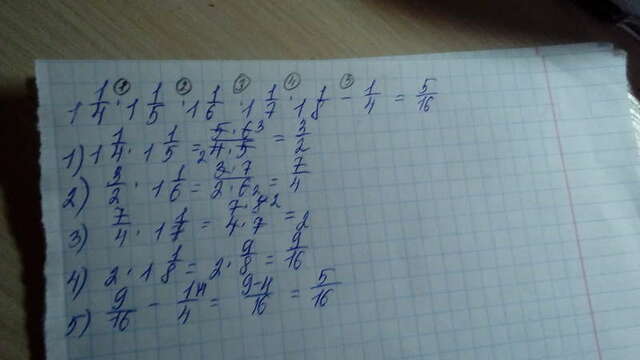 1 1/4 · 1 1/5 · 1 1/6 · 1 1/7 · 1 1/8 - 1/4 = 5/16
1) 1 1/4 · 1 1/5 = 5·6³/₂4·5 = 3/2
2) 3/2 · 1 1/6 = 3·7/2·6₂ = 7/4
3) 7/4 · 1 1/7 = 7·8²/4·7 = 2
4) 2 · 1 1/8 = 2 · 9/8 = 9/16
5) 9/16 - 1⁴/4 = 9-4/16 = 5/16